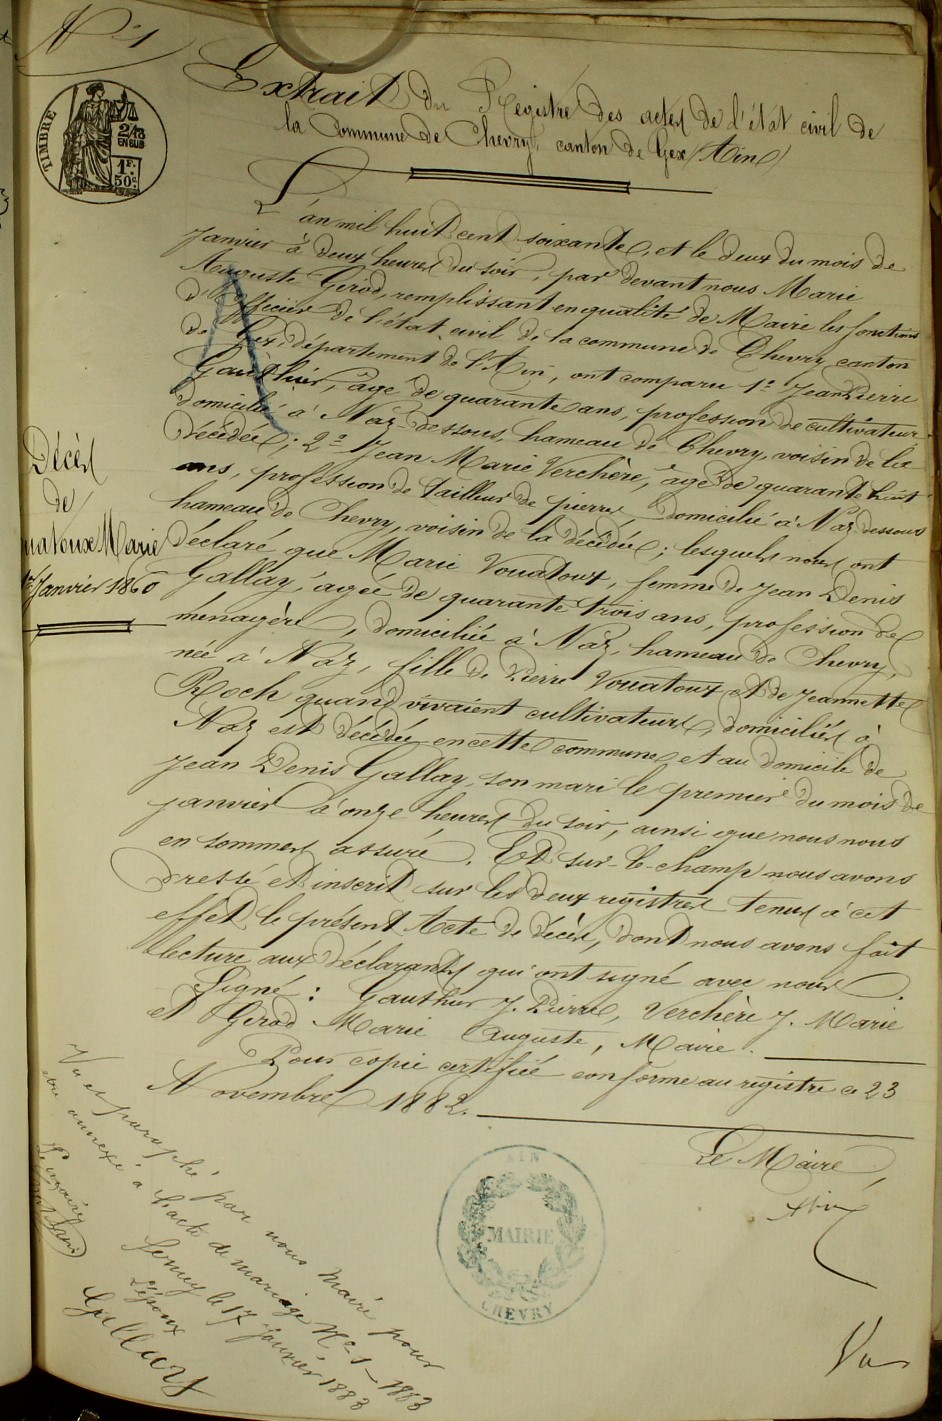 N° 1
TIMBRE
2/10
EN SUS
1F.
50c.
Extrait du Registre des actes de l'état civil de
la Commune de Chevry, canton de Gex (Ain)
L'an mil huit cent soixante, et le deux du mois de
Janvier à deux heures du soir, par devant nous Marie
Auguste Gerod, remplissant en qualité de Maire les fonctions
d'officier de l'état civil de la commune de Chevry canton
de Gex, département de l'Ain, ont comparu 1° Jean Pierre
Gauthier, âgé de quarante ans, profession de cultivateur
domicilié à Naz-dessous, hameau de Chevry, voisin de la
décédée; 2° Jean Marie Verchère, âgé de quarante huit
ans, profession de tailleur de pierres, domicilié à Naz-dessous
hameau de Chevry, voisin de la décédée; lesquels nous ont
déclaré que Marie Vouatoux, femme de Jean Denis
Gallay, âgée de quarante trois ans, profession de
ménagère, domiciliée à Naz, hameau de Chevry,
née à Naz, fille de Pierre Vouatoux et de Jeannette
Roch quand vivaient cultivateurs, domiciliés à
Naz est décédée en cette commune et au domicile de
Jean Denis Gallay, son mari le premier du mois de
janvier à onze heures du soir, ainsi que nous nous
en sommes assuré. Et sur-le-champ nous avons
dressé et inscrit sur les deux registres tenus à cet
effet le présent Acte de décès, dont nous avons fait
lecture aux déclarants qui ont signé avec nous.
Signé: Gauthier J. Pierre, Verchère J. Marie
et Gerod Marie Auguste, Maire.
Pour copie certifiée conforme au registre ce 23
Novembre 1882.
Le Maire,
Décès
de
uatoux Marie
1er Janvier 1860
AIN
MAIRIE
CHEVRY
Vu et paraphé par nous Maire pour
être annexé à l'acte de mariage N° 1 - 1883
Ferney le 17 Janvier 1883
L'époux
Gallay
Vu